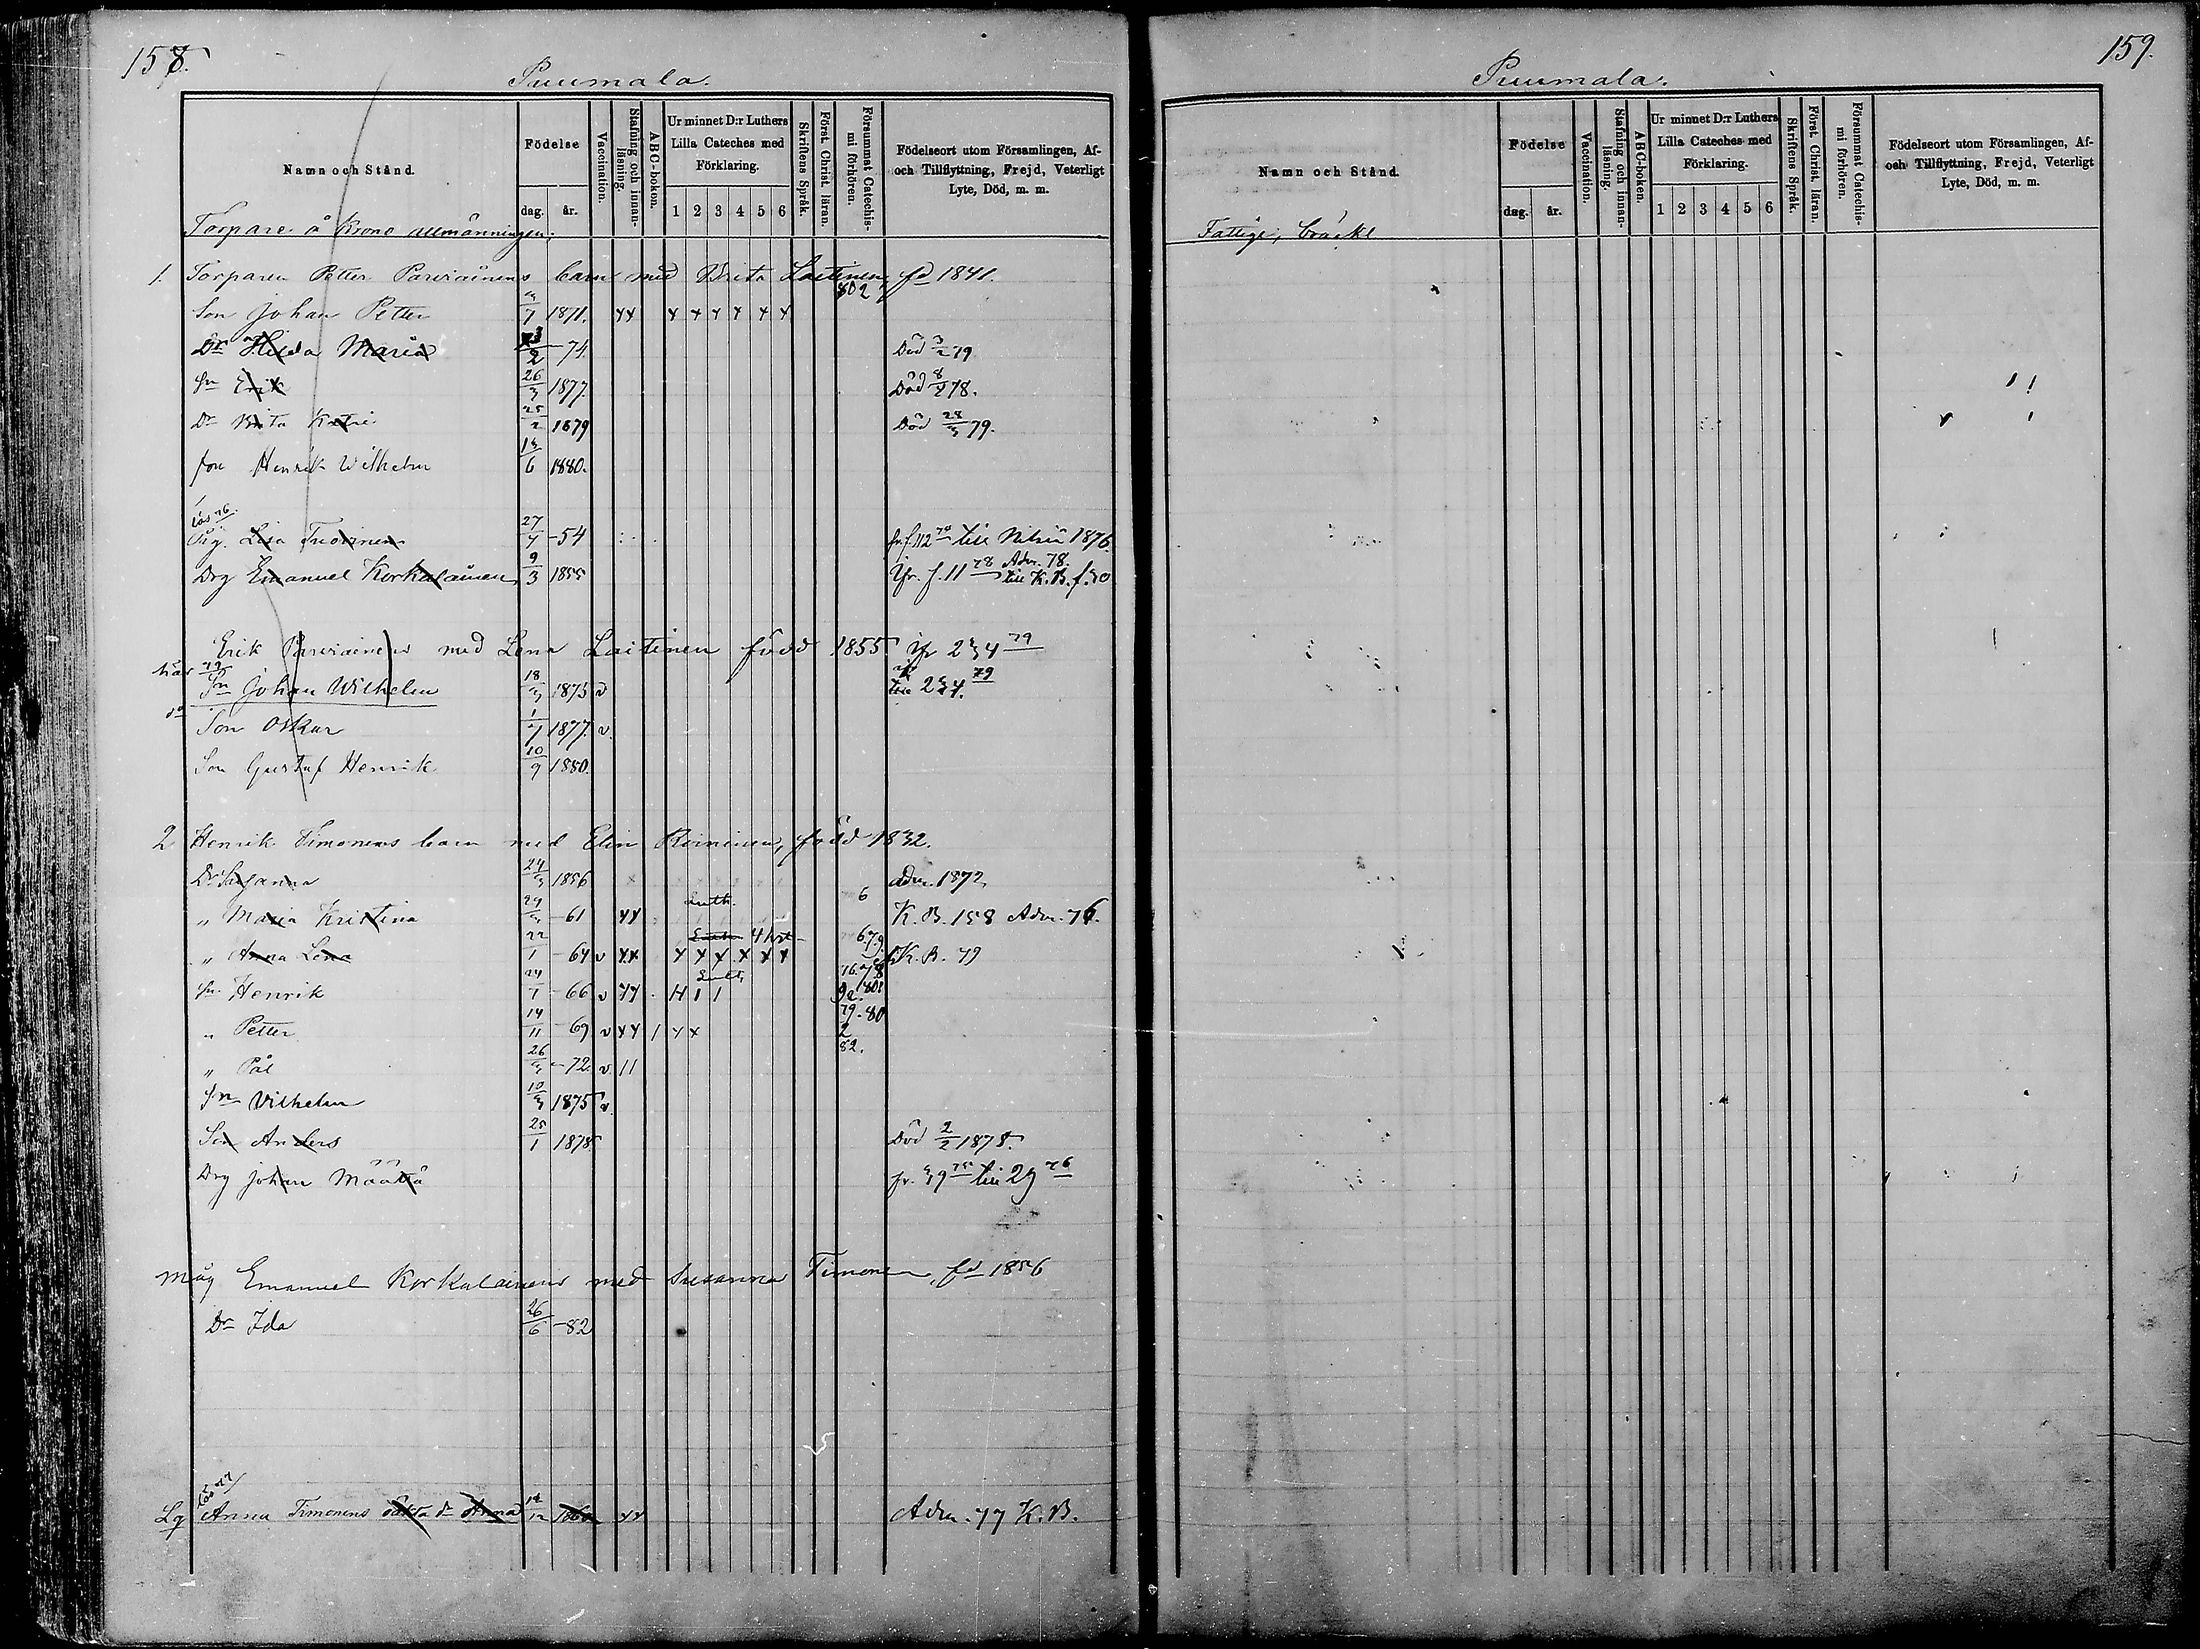 158.
Puumala.
Namn och Stånd.
Födelse
dag. år.
Vaccination.
Stafning och innanläsning.
ABC-boken.
Ur minnet D:r Luthers Lilla Cateches med Förklaring.
1 2 3 4 5 6
Skriftens Språk.
Först. Christ. läran.
Försummat Catechismi förhören.
Födelseort utom Församlingen, Af- och Tillflyttning, Frejd, Veterligt Lyte, Död, m. m.
Torpare å Krono allmänningen.
1. Torparen Petter Parviainens barn med Brita Laitinen, fd 1841.
Son Johan Petter 7 1871. xx x x x x x x 802
Dr Hilda Maria 2 -74. Död 79
Sn Erik 26/3 1877. Död 78.
Dr Brita Katri 25/2 1879 Död 28/3 79.
Son Henrik Wilhelm 13/6 1880.
Lös 76.
Pig. Lisa Tuovinen 27/7 -54 fr. f. 112 till Nilsiä 1876.
Drg Emanuel Korkalainen 9/3 1855 Yfr. f. 11 78 Adm. 78. till K. B. f. 30
Erik Parviainens med Lena Laitinen född 1855 Yfr 234 79
här 79
Sn Johan Wilhelm 18/3 1875 v till 234. 79
do Son Oskar 1/7 1877. v.
Son Gustaf Henrik 10/9 1880.
2 Henrik Timonens barn med Elin Roininen, född 1832.
Dr Susanna 24/3 1856 adm. 1872.
" Maria Kristina 29 -61 xx Luth. 6 K. B. 158 Adm. 76.
" Anna Lena 22/1 -64 v xx x x x x x x 6.79. K. B. 79
Sn Henrik 24/7 -66 v xx Luth. 76.78 80
" Petter 14/11 -69 v xx / x x 79-80 2
" Pål 26/3 -72. v. 11 82.
Sn Vilhelm 10/3 1875 v.
Son Anders 25/1 1878. Död 2/2 1878.
Drg Johan Määttä fr. 39 75 till 29 76
Måg Emanuel Korkalainens med Susanna Timonen, fd 1856
Dr Ida 26/6 -82
Lös 77
Lg Anna Timonens oäkta dr Anna 12 1860 xx Adm. 77 K. B.
159.
Puumala.
Namn och Stånd.
Födelse
dag. år.
Vaccination.
Stafning och innanläsning.
ABC-boken.
Ur minnet D:r Luthers Lilla Cateches med Förklaring.
1 2 3 4 5 6
Skriftens Språk.
Först. Christ. läran.
Försummat Catechismi förhören.
Födelseort utom Församlingen, Af- och Tillflyttning, Frejd, Veterligt Lyte, Död, m. m.
Fattige, bräckl